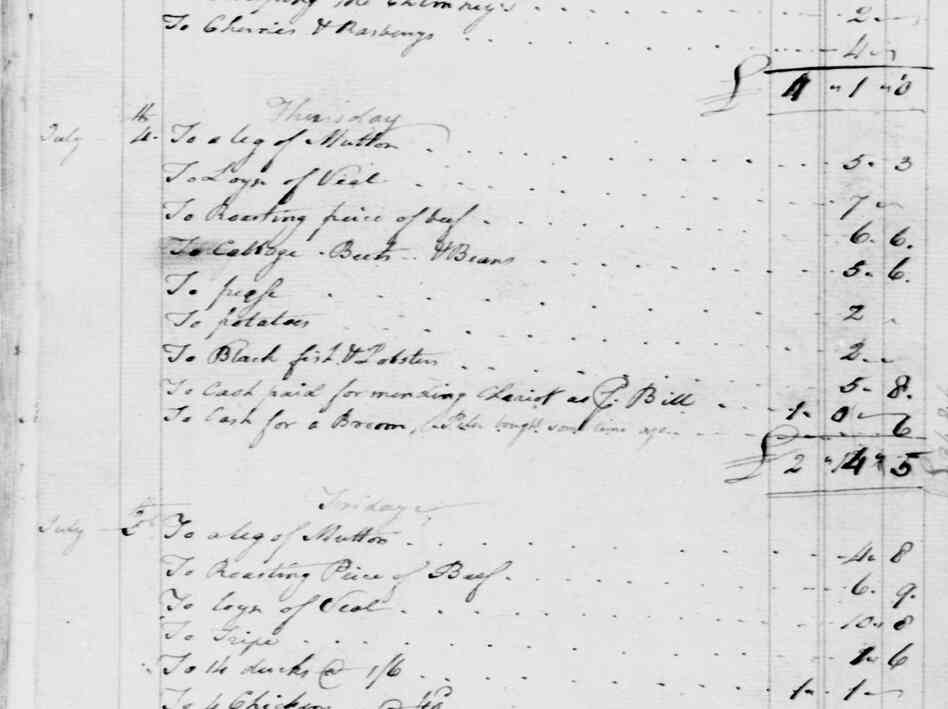 Chimneys . . . 2. —
To Cherries & Rasberrys . . . 4 —
£ 4 " 1 " 8
Thursday
July 4th To a leg of Mutton . . . 5. 3
To Loyn of Veal . . . 7 —
To Roasting peice of beef . . . 6. 6.
To Cabbage - Beets - & Beans . . . 5. 6.
To pease . . . 2
To potatoes . . . 2. —
To Black fish & Lobsters . . . 5. 8.
To Cash paid for mending Chariot as P. Bill . . . 1. 0 —
To Cash for a Broom, bought some time ago . . . 6
£ 2 " 14 " 5
Friday
July 5th To a leg of Mutton . . . 4. 8
To Roasting Peice of Beef . . . 6. 9.
To loyn of Veal . . . 10. 8
To Tripe . . . 1. 6
To 14 ducks @ 1/6 . . . 1. 1 —
To 4 Chickens @